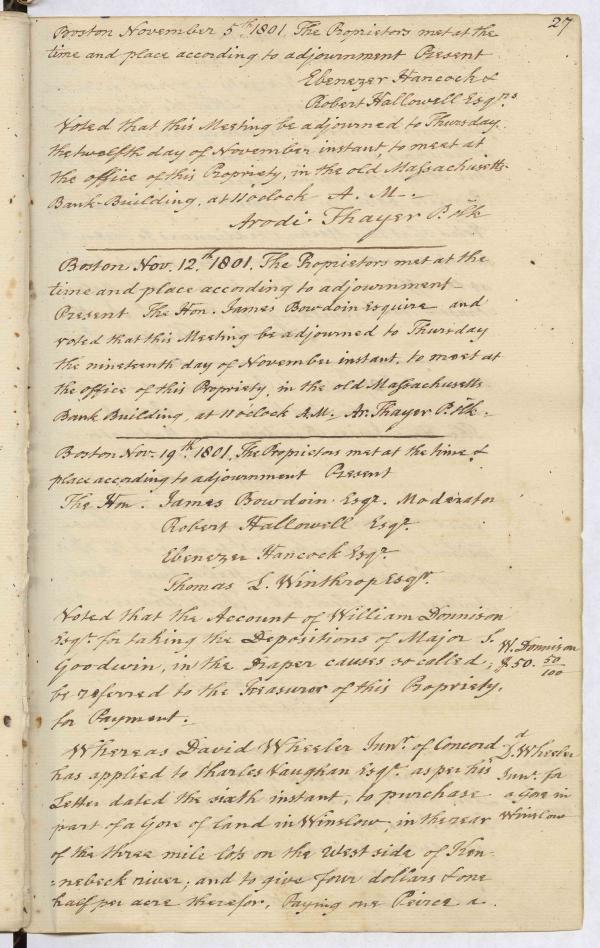 27
Boston November 5th. 1801. The Proprietors met at the
time and place according to adjournment Present
Ebenezer Hancock &
Robert Hallowell Esqrs.
Voted that this Meeting be adjourned to Thursday
the twelfth day of November instant, to meet at
the office of this Propriety, in the old Massachusetts
Bank Building, at 11 oclock A. M.
Arodi Thayer P. Clk
Boston Nov. 12.th 1801. The Proprietors met at the
time and place according to adjournment
Present The Hon. James Bowdoin Esquire and
voted that this Meeting be adjourned to Thursday
the nineteenth day of November instant, to meet at
the office of this Propriety, in the old Massachusetts
Bank Building, at 11 oclock A.M. Ar. Thayer P. Clk.
Boston Nov. 19.th 1801. The Proprietors met at the time &
place according to adjournment Present
The Hon. James Bowdoin Esqr. Moderator
Robert Hallowell Esqr.
Ebenezer Hancock Esqr.
Thomas L. Winthrop Esqr.
Voted that the Account of William Donnison
Esqr. for taking the Depositions of Major S.
Goodwin, in the Draper causes so called,
be referred to the Treasurer of this Propriety.
for Payment.
W. Donnison
$50. 50/100
Whereas David Wheeler Junr. of Concord
has applied to Charles Vaughan Esqr. as per his
Letter dated the sixth instant, to purchase
part of a Gore of land in Winslow, in the rear
of the three mile lots on the West side of Ken-
=nebeck river, and to give four dollars & one
half per acre therefor, Paying one Peirce a
Dd. Wheeler
Junr. for
a Gore in
Winslow